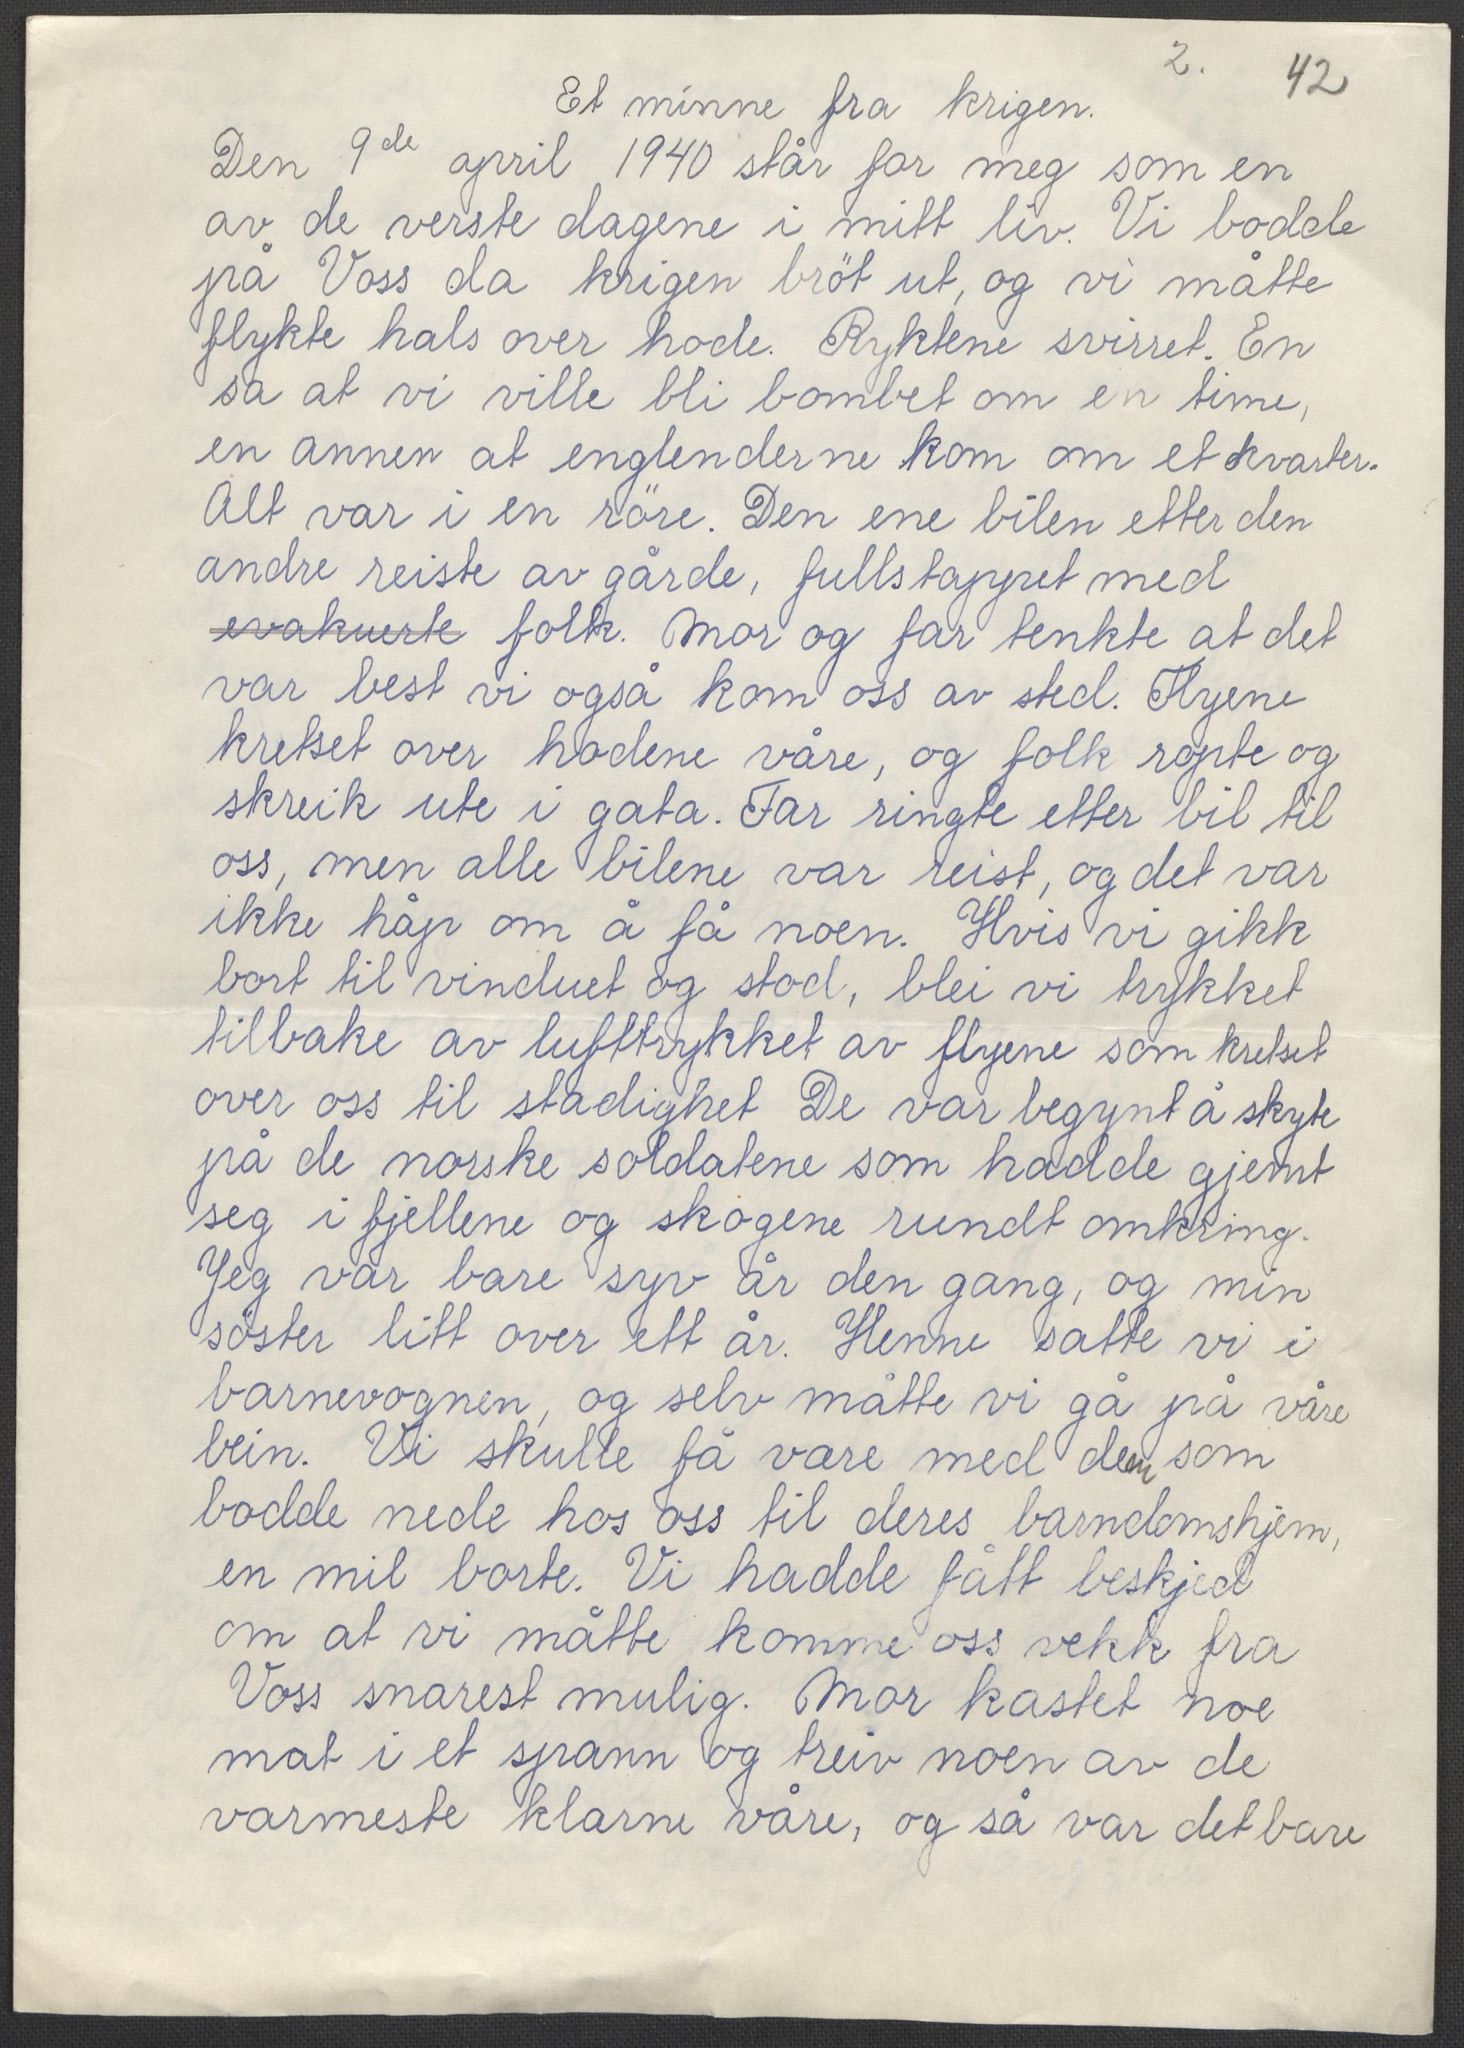 2. 42
Et minne fra krigen.
Den 9de april 1940 står for meg som en
av de verste dagene i mitt liv. Vi bodde
på Voss da krigen bröt ut, og vi måtte
flykte hals over hode. Ryktene svirret. En
sa at vi ville bli bombet om en time,
en annen at englenderne kom om et kvarter.
Alt var i en röre. Den ene bilen etter den
andre reiste av gårde, fullstappet med
evakuerte folk. Mor og far tenkte at det
var best vi også kom oss av sted. Flyene
kretset over hodene våre, og folk ropte og
skreik ute i gata. Far ringte etter bil til
oss, men alle bilene var reist, og det var
ikke håp om å få noen. Hvis vi gikk
bort til vinduet og stod, blei vi trykket
tilbake av lufttrykket av flyene som kretset
over oss til stadighet De var begynt å skyte
på de norske soldatene som hadde gjemt
seg i fjellene og skogene rundt omkring.
Jeg var bare syv år den gang, og min
söster litt over ett år. Henne satte vi i
barnevognen, og selv måtte vi gå på våre
bein. Vi skulle få være med dem som
bodde nede hos oss til deres barndomshjem,
en mil borte. Vi hadde fått beskjed
om at vi måtte komme oss vekk fra
Voss snarest mulig. Mor kastet noe
mat i et spann og treiv noen av de
varmeste klærne våre, og så var det bare